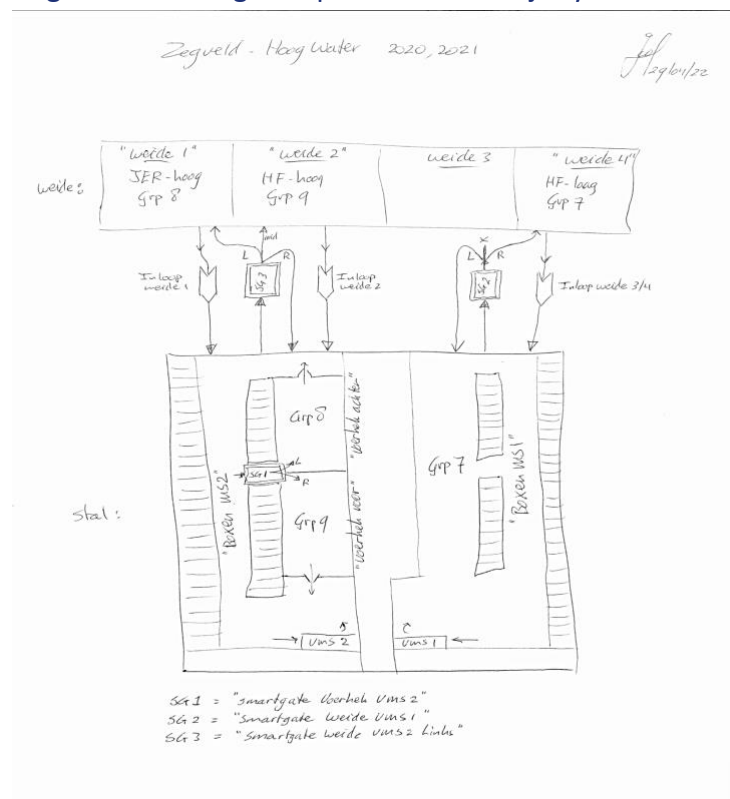 Zegveld - Hoog Water 2020, 2021
29/04/22
weide:
"weide 1"
JER-hoog
Grp 8
"weide 2"
HF-hoog
Grp 9
weide 3
"weide 4"
HF-laag
Grp 7
Inloop
weide 1
L
R
SG 3
Inloop
weide 2
L
X
R
SG 2
Inloop weide 3/4
stal:
"Boxen MS2"
Grp 8
SG 1
L
R
Grp 9
"Voerhek achter"
"Voerhek voor"
Grp 7
"Boxen MS1"
VMS 2
VMS 1
SG 1 = "smartgate Voerhek VMS 2"
SG 2 = "Smartgate weide VMS 1"
SG 3 = "Smartgate weide VMS 2 Links"